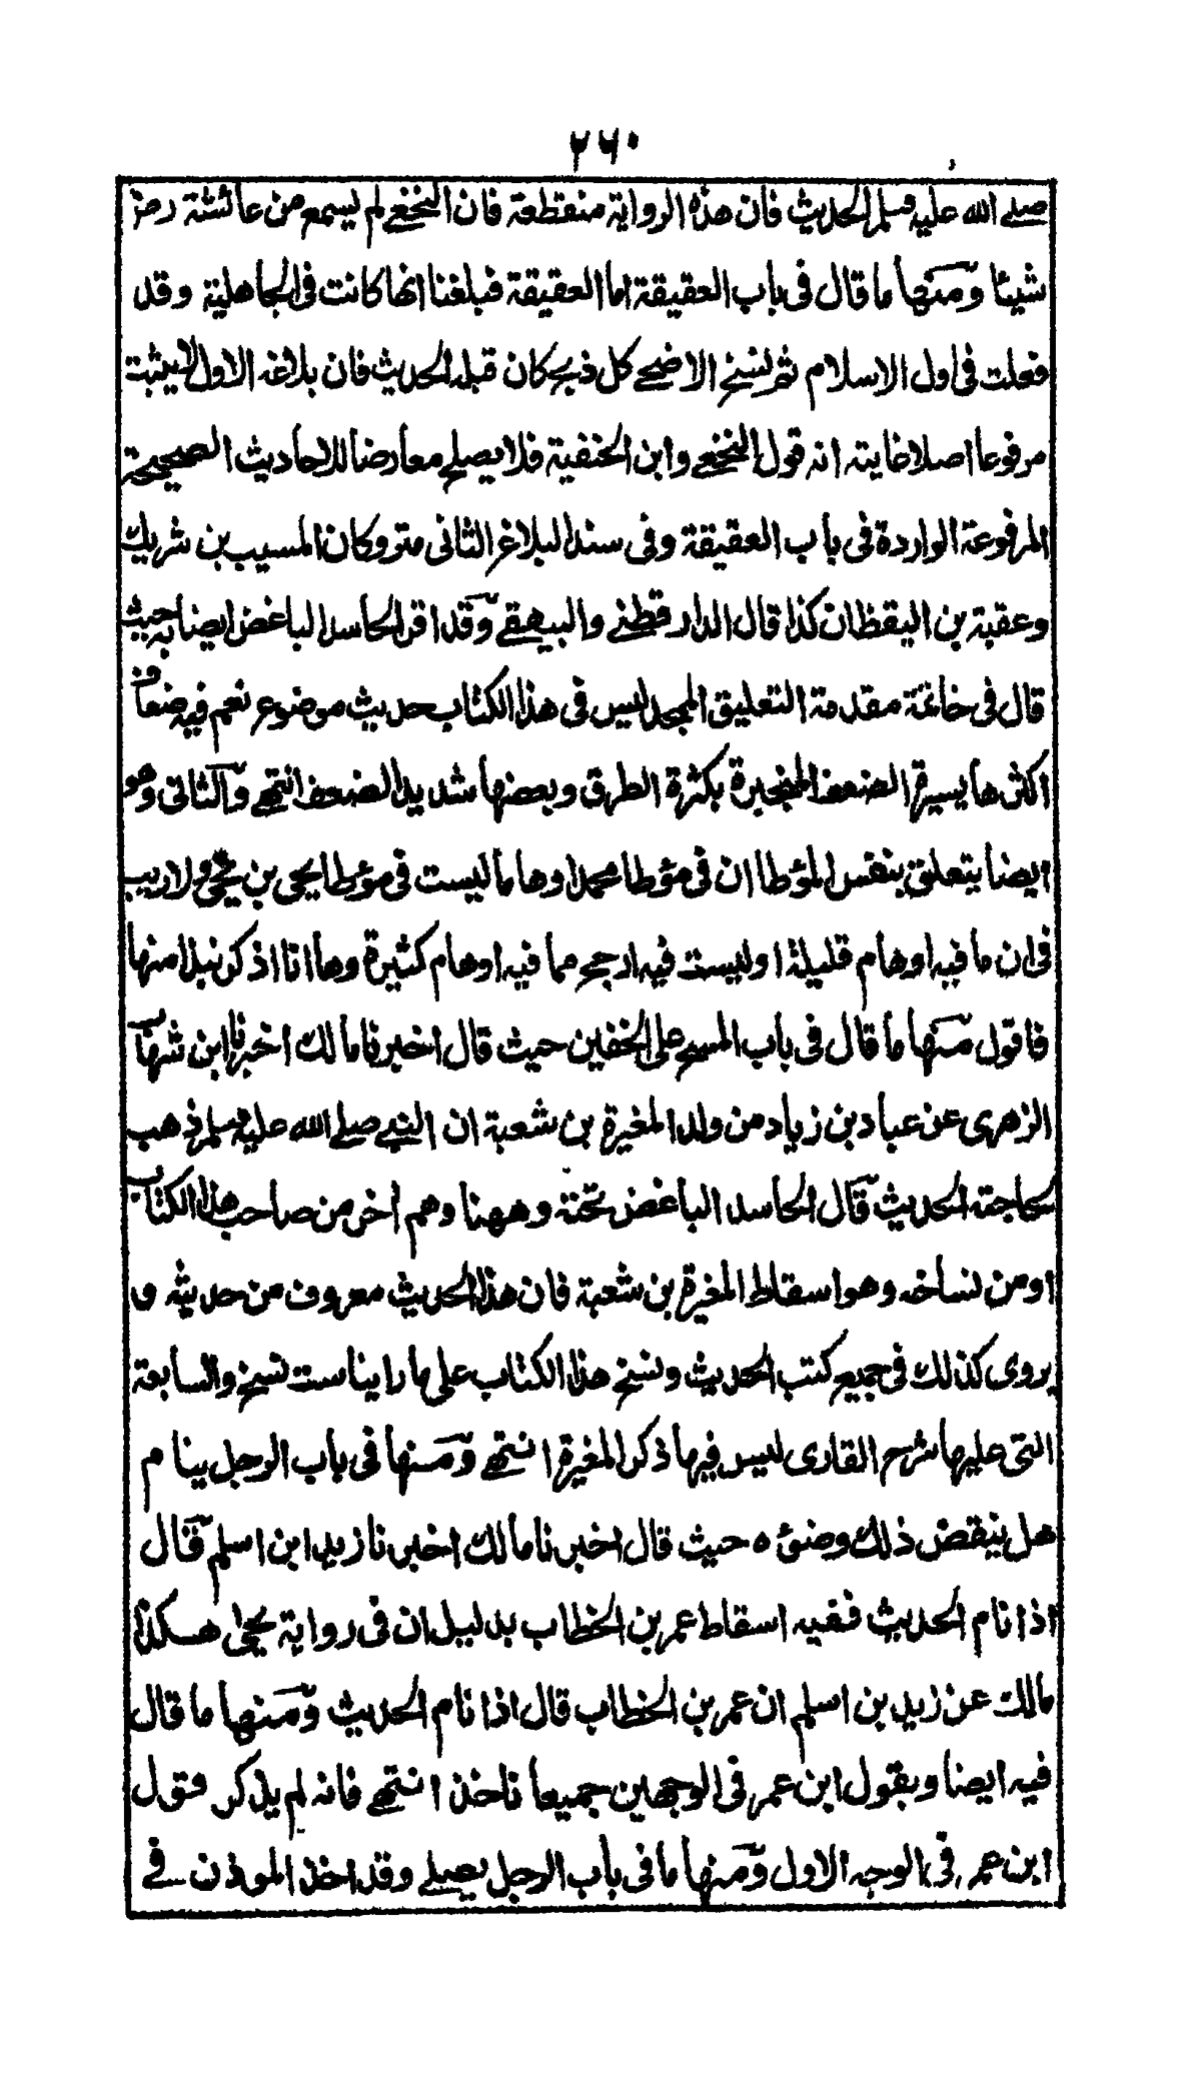 ٢٦٠
صلے الله عليه وسلم الحديث فان هذه الرواية منقطعة فان النخعے لم يسمع من عائشة رضـ
شيئا ومنها ما قال فى باب العقيقة اما العقيقة فبلغنا انها كانت فى الجاهلية وقد
فعلت فى اول الاسلام ثم نسخ الاضحے كل ذبح كان قبله الحديث فان بلاغه الاول لا يثبت
مرفوعا اصلا غايته انه قول النخعے وابن الحنفية فلا يصلح معارضا للاحاديث الصحيحة
المرفوعة الواردة فى باب العقيقة وفى سند البلاغ الثانى متروكان المسيب بن شريك
وعقبة بن اليقظان كذا قال الدارقطنے والبيهقے وقد اقر الحاسد الباغض ايضا به حيث
قال فى خاتمة مقدمة التعليق الممجد ليس فى هذا الكتاب حديث موضوع نعم فيه ضعاف
اكثرها يسيرة الضعف المنجبرة بكثرة الطرق وبعضها شديد الضعف انتهے والثانى وهو
ايضا يتعلق بنفس المؤطا ان فى مؤطا محمد اوهاما ليست فى مؤطا يحيى بن يحيى ولا ريب
فى ان ما فيه اوهام قليلة او ليست فيه ارجح مما فيه اوهام كثيرة وها انا اذكر نبذا منها
فاقول منها ما قال فى باب المسح على الخفين حيث قال اخبرنا مالك اخبرنا ابن شهاب
الزهرى عن عباد بن زياد من ولد المغيرة بن شعبة ان النبے صلے الله عليه وسلم ذهب
لحاجته الحديث قال الحاسد الباغض تحته وههنا وهم اخر من صاحب هذا الكتاب
او من نساخه وهو اسقاط المغيرة بن شعبة فان هذا الحديث معروف من حديثه و
يروى كذلك فى جميع كتب الحديث ونسخ هذا الكتاب على ما راينا ست نسخ والسابعة
التى عليها شرح القارى ليس فيها ذكر المغيرة انتهے ومنها فى باب الرجل ينام
هل ينقض ذلك وضوئه حيث قال اخبرنا مالك اخبرنا زيد ابن اسلم قال
اذا نام الحديث ففيه اسقاط عمر بن الخطاب بدليل ان فى رواية يحيى هكذا
مالك عن زيد بن اسلم ان عمر بن الخطاب قال اذا نام الحديث ومنها ما قال
فيه ايضا وبقول ابن عمر فى الوجهين جميعا ناخذ انتهے فانه لم يذكر قول
ابن عمر فى الوجه الاول ومنها ما فى باب الرجل يصلے وقد اخذ الموذن فے